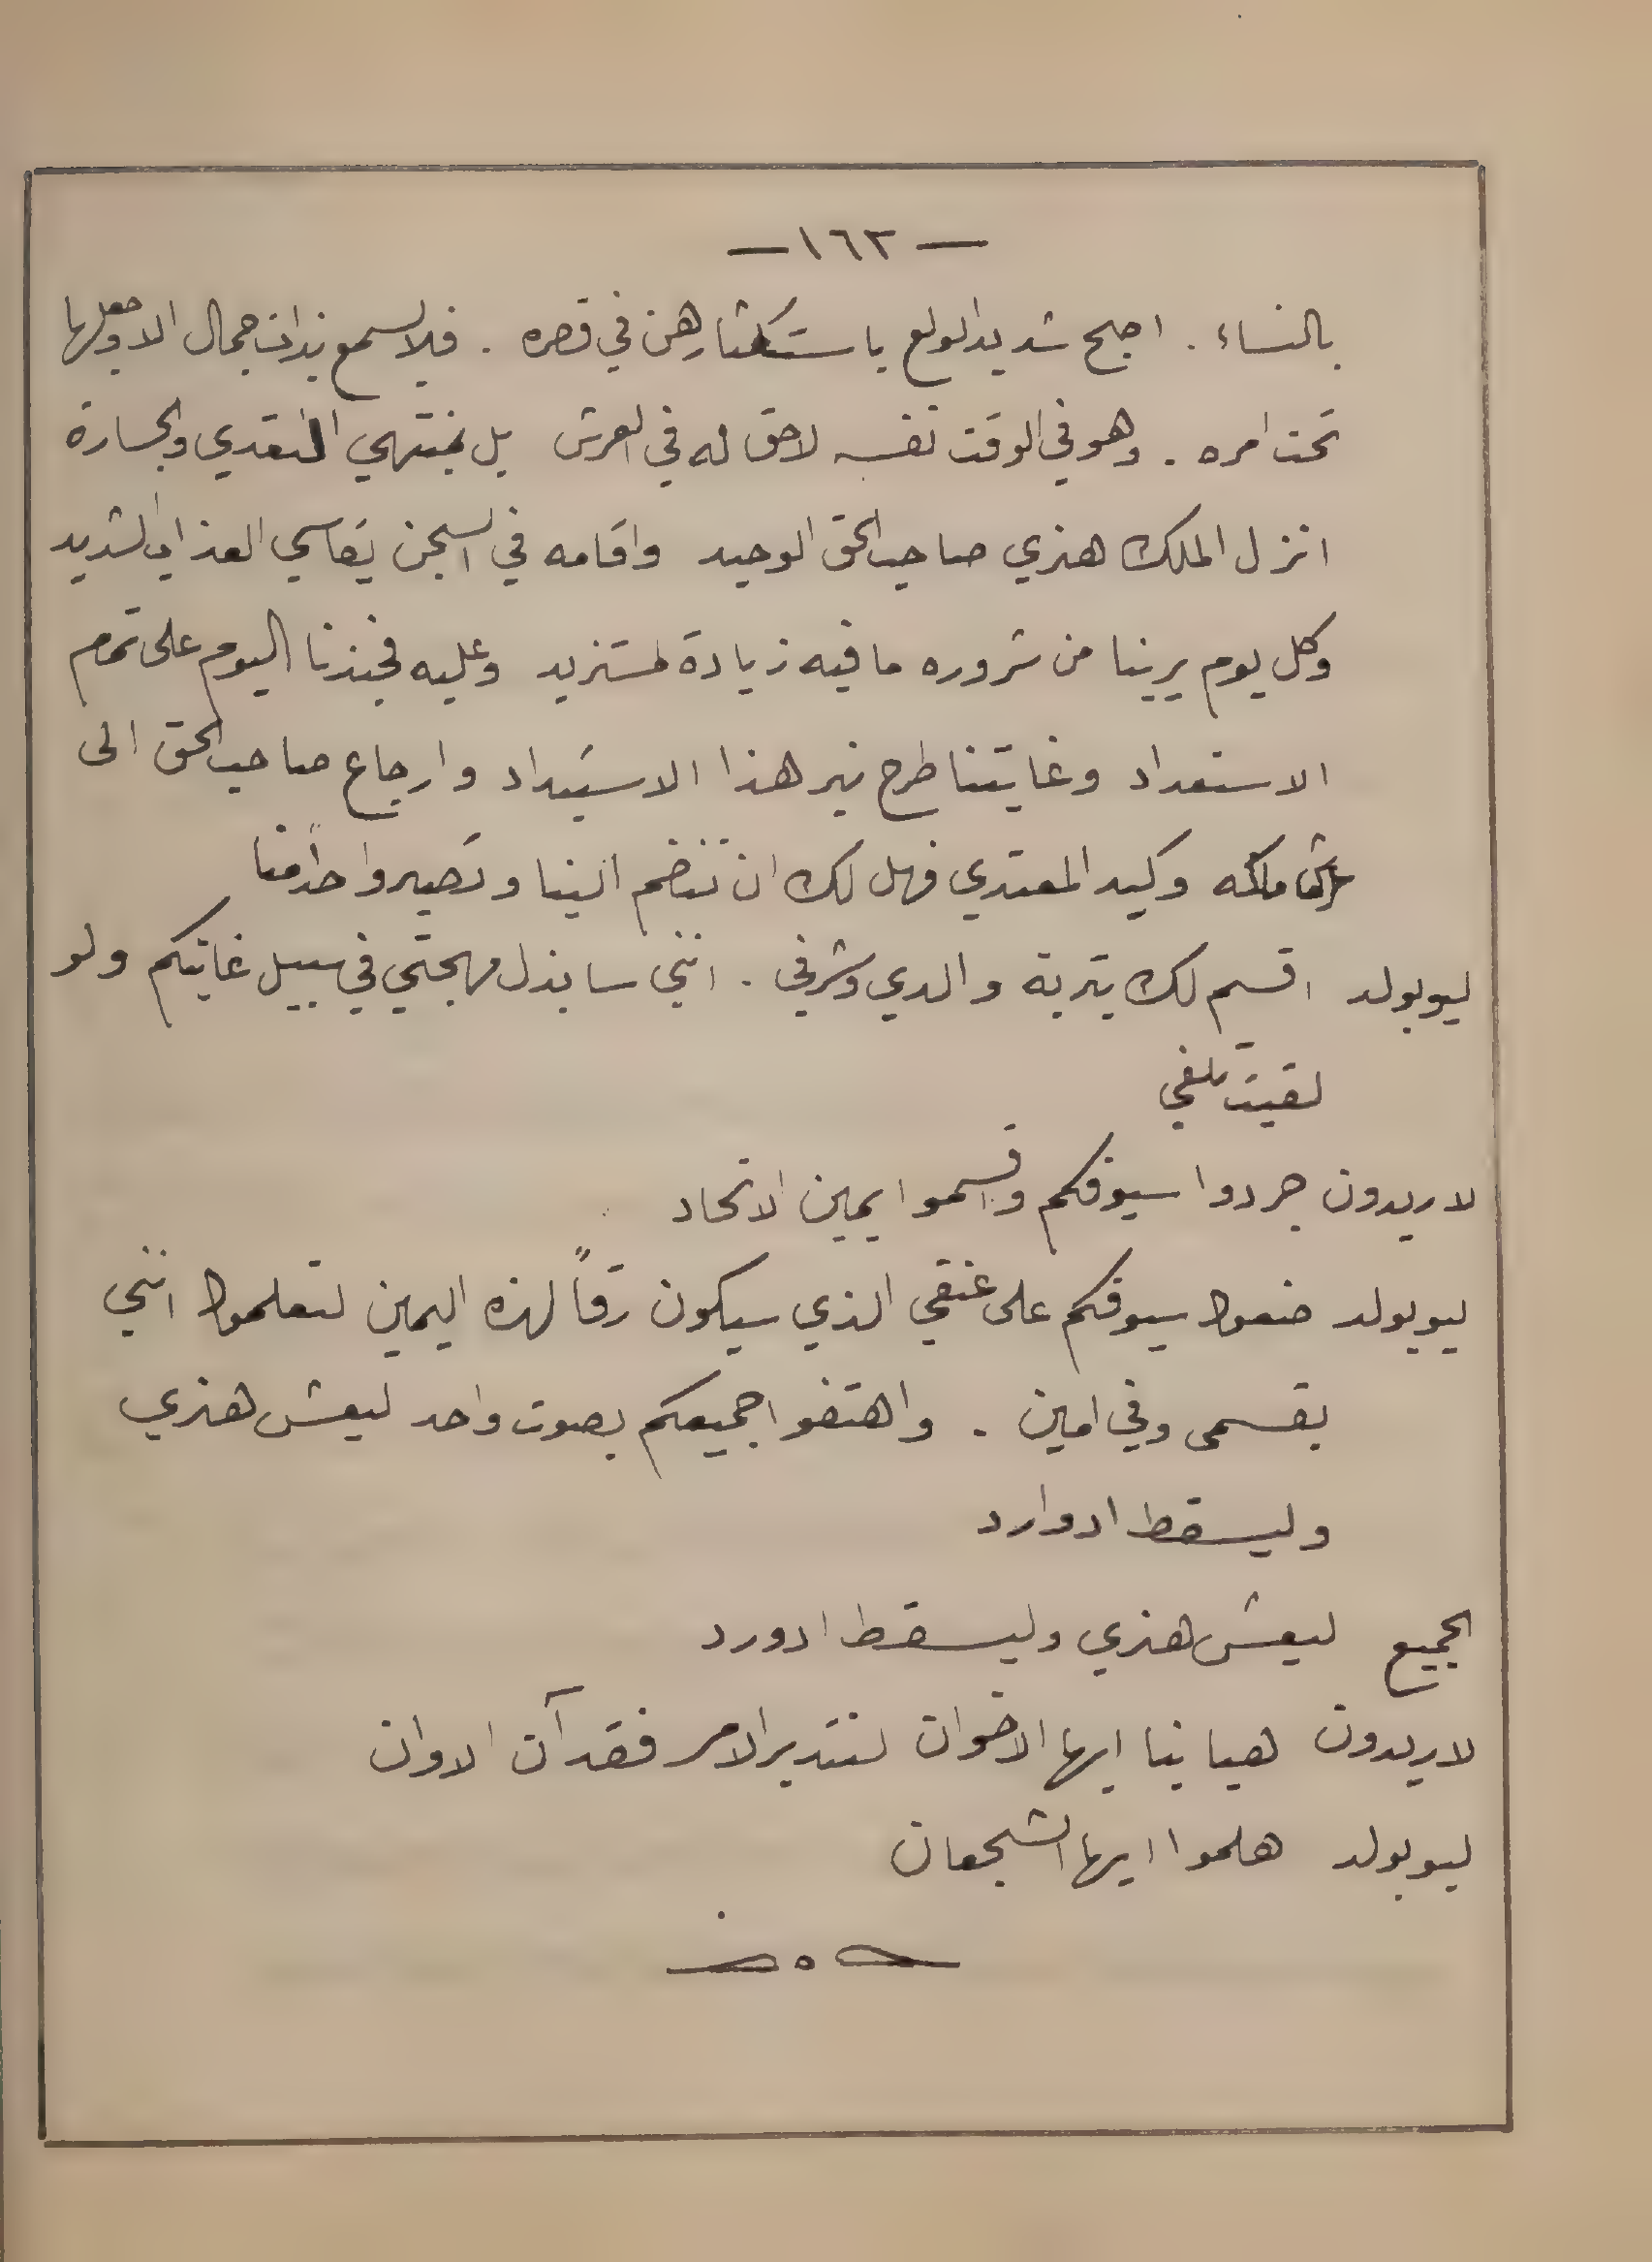 — ١٦٢ —
بالنساء . اصبح شديد الولع باستكثارهن في قصره . فلا يسمع بذات جمال الا وجعلها
تحت امره . وهو في الوقت نفسه لا حق له في العرش بل بمنتهي التعدي والجسارة
انزل الملك هنري صاحب الحق الوحيد واقامه في السجن يقاسي العذاب الشديد
وكل يوم يرينا من شروره ما فيه زيادة لمستزيد وعليه فجندنا اليوم على تمام
الاستعداد وغايتنا طرح نير هذا الاستبداد وارجاع صاحب الحق الى
عرش ملكه وكيد المعتدي فهل لك ان تنضم الينا وتصير واحدًا منا
ليوبولد اقسم لك بتربة والدي وشرفي . انني سابذل مهجتي في سبيل غايتكم ولو
لقيت تلفي
لاريدون جردوا سيوفكم واقسموا يمين الاتحاد
ليوبولد ضعوا سيوفكم على عنقي الذي سيكون رقاً لهذه اليمين لتعلموا انني
بقسمي وفي امين . واهتفوا جميعكم بصوت واحد ليعش هنري
وليسقط ادوارد
الجميع ليعش هنري وليسقط ادورد
لاريدون هيا بنا ايها الاخوان لنتدبر الامر فقد آن الاوان
ليوبولد هلموا ايها الشجعان